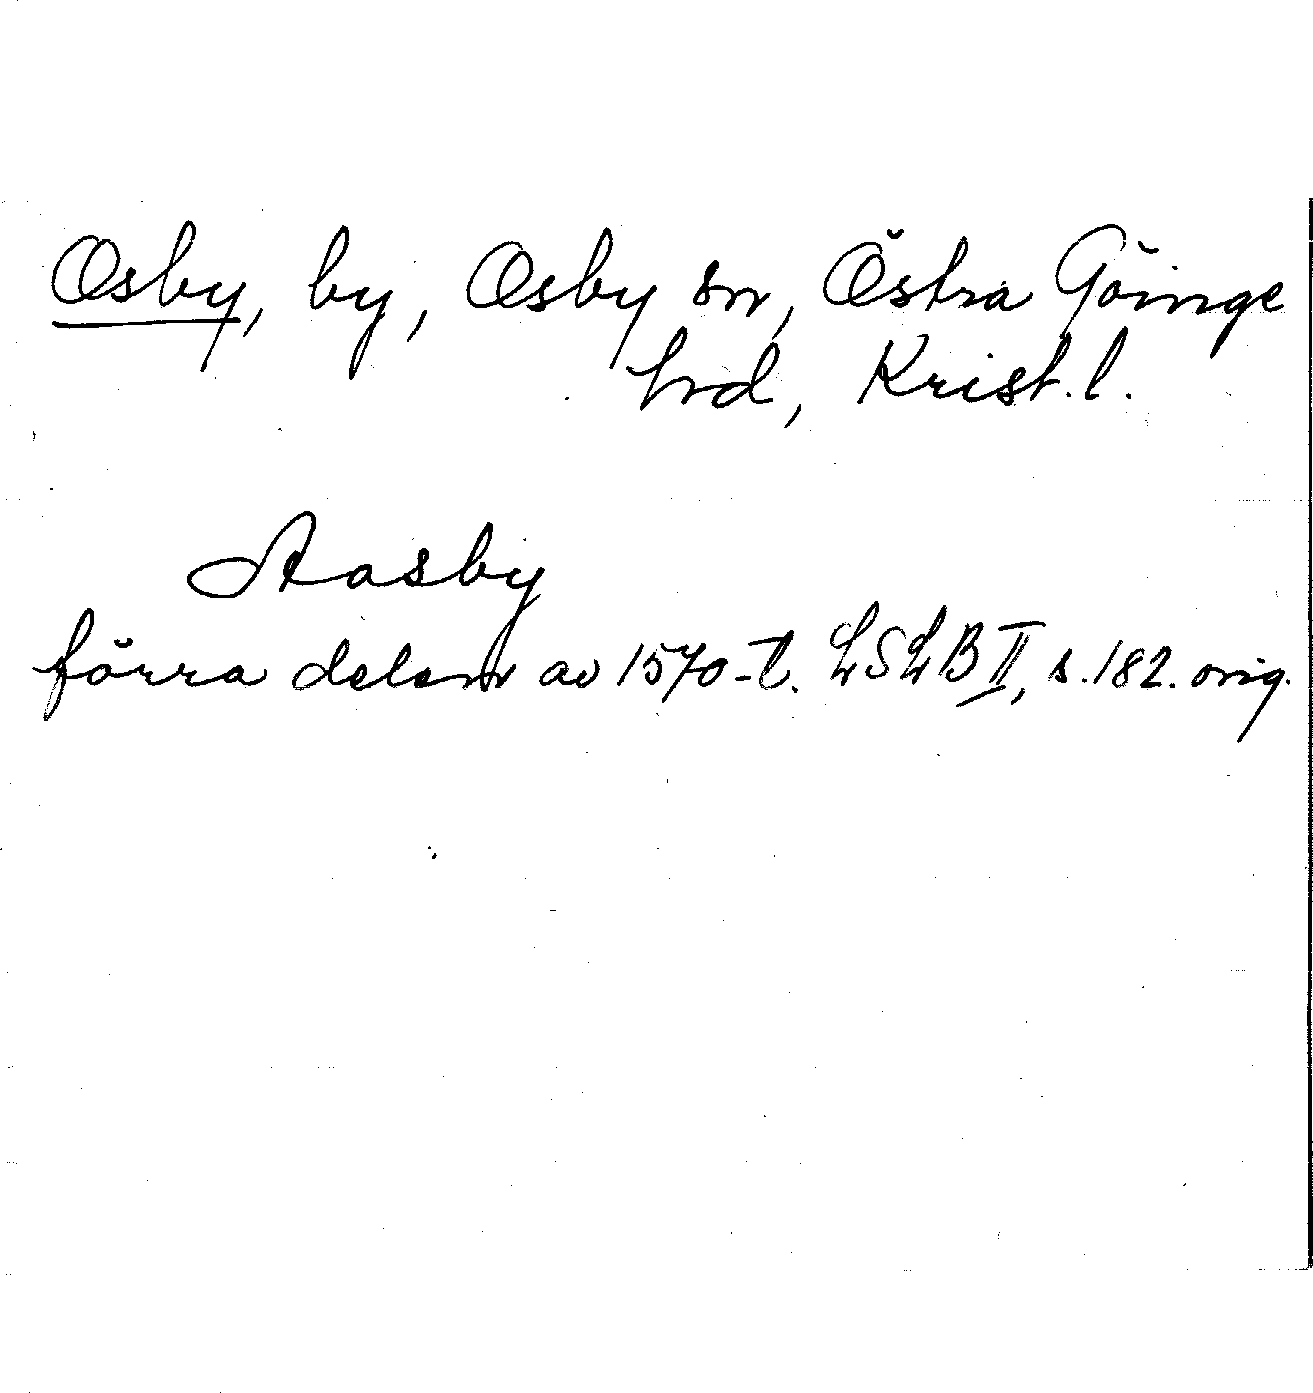 Osby, by, Osby sn, Östra Göinge
hrd, Krist. l.
Aasby
förra delen av 1570-t. LSLB II, s. 182. orig.